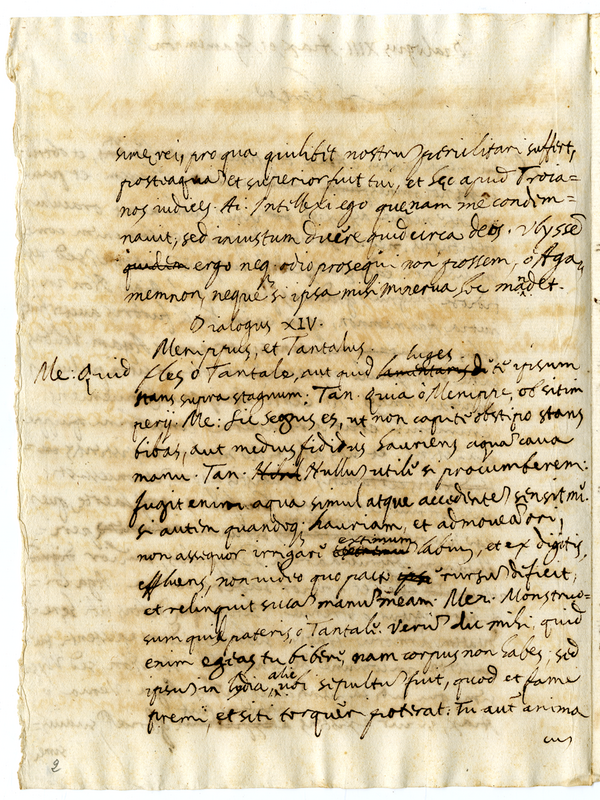 simę rei, pro qua quilibet nostrũ periclitari suffert,
posteaquã et superior fuit tui, et hęc apud Troia=
nos iudices. Ai: Intellexi ego quęnam mẽ condem=
nauit, sed iniustum dicẽre quid circa deos. Vlyssẽ
quidem ergo neq. odio prosequi non possem, o Aga,
memnon, neque si ipsa mihi minerva hoc mãdet.
Dialogus XIV.
Menippus, et Tantalus.
luges
Me: Quid fles o Tantale, aut quid lamentaris tẽ ipsum
stans supra stagnum: Tan: quia o Menippe, ob sitim
perij. Me: Sic segnis es, ut non capite obstipo stans
bibas, aut medius fidius hauriens aquã caua
manu. Tan: Nullũ utilẽ si procumberem:
fugit enim aqua simul atque accedentẽ senserit mẽ.
si autem quandoq. hauriam, et admoveã ori,
extimum
non assequor irrigari labium, et ex digitis,
effluens, non video quo pacto rursũ deficit,
et relinquit siccã manũ meam. Men. Monstruo=
sum quid pateris, o Tantale. Verũ dic mihi, quid
enim egeas tu biberẽ, nam corpus non habes, sed
ipsũ in Lydia, ubi sepultũ fuit, quod et fame
premi, et siti torquẽr poterat: Tu autẽ anima
cuj
2